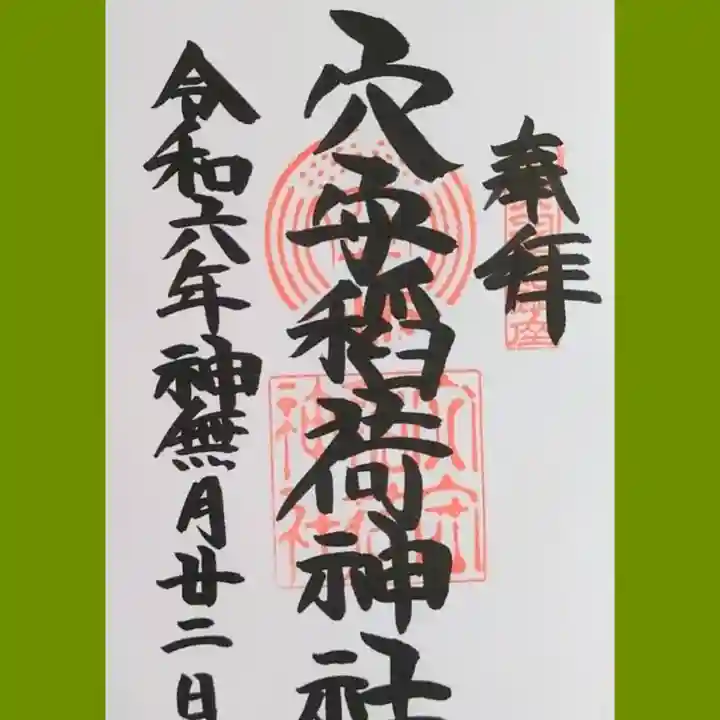 奉拝
穴守稲荷神社
令和六年神無月廿二日